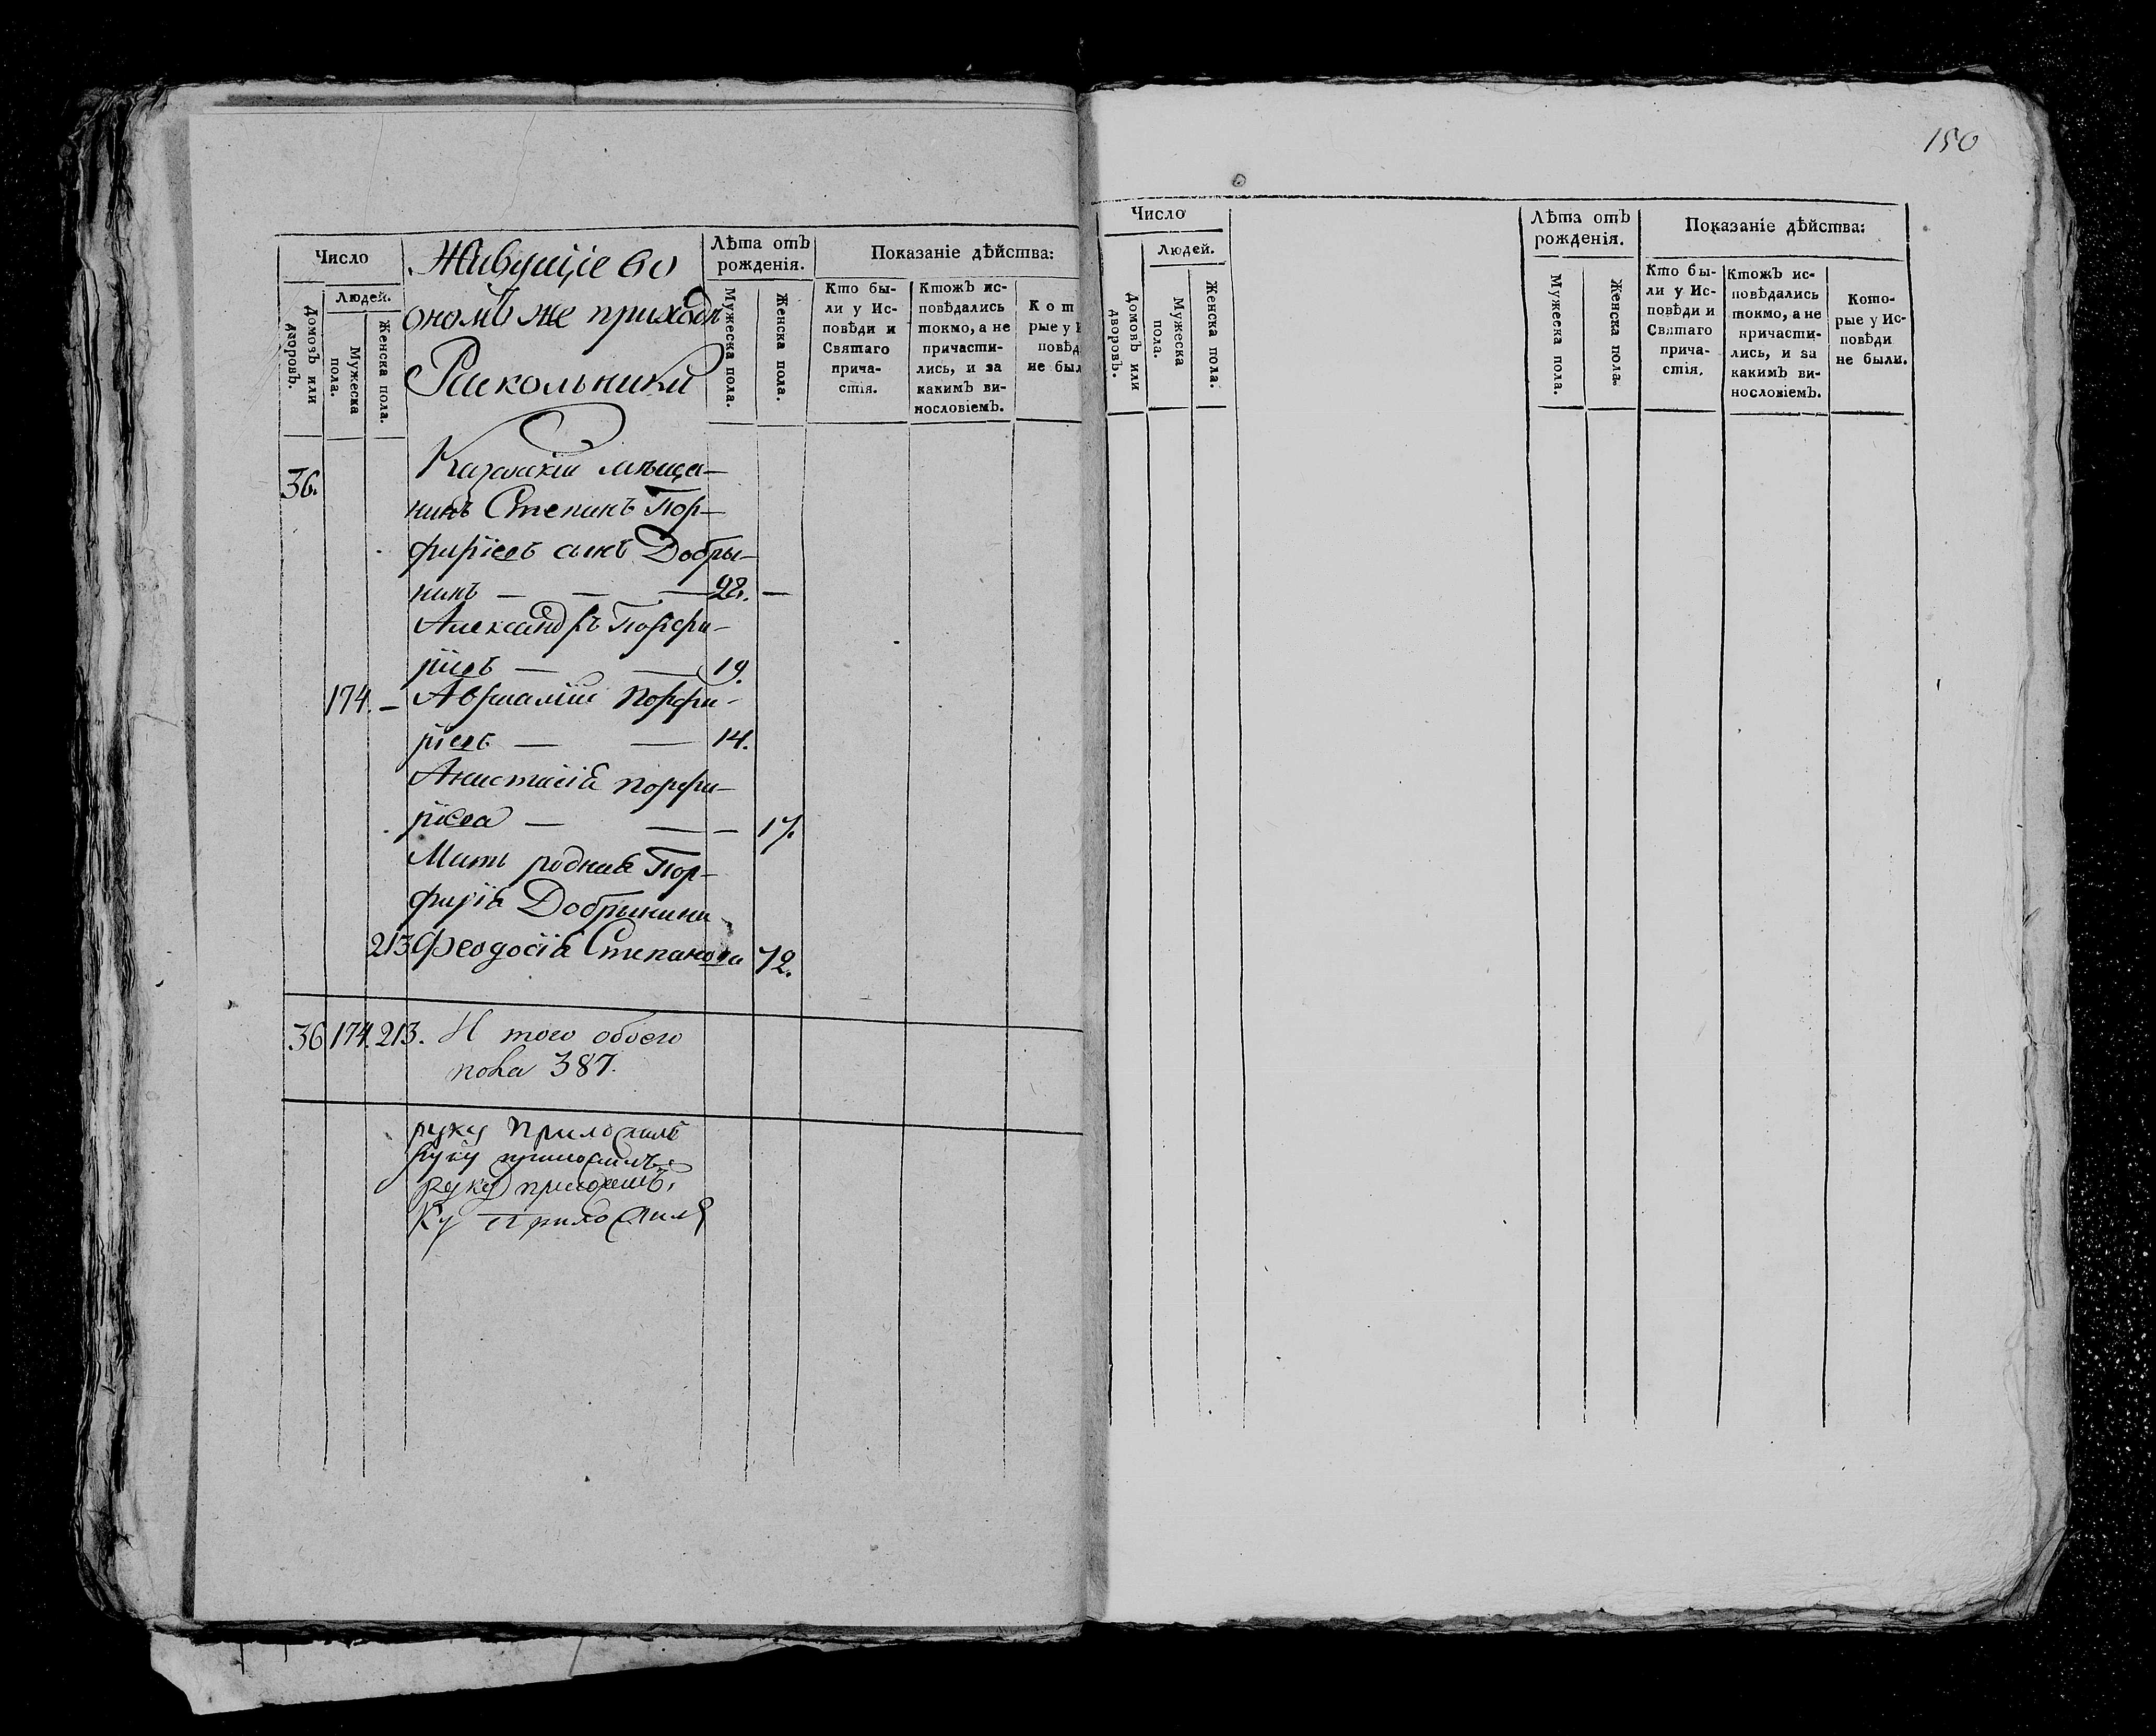 Число
Людей.
Домовъ или дворовъ.
Мужеска пола.
Женска пола.
Живущіе во
ономъ же приходѣ
Раскольники
Лѣта отъ
рожденія.
Мужеска пола.
Женска пола.
Показаніе дѣйства:
Кто бы-
ли у Ис-
повѣди и
Святаго
прича-
стія.
Ктожъ ис-
повѣдались
токмо, а не
причасти-
лись, и за
какимъ ви-
нословіемъ.
Кот
рые у И
повѣд
не был
36. Казанскій мѣща-
нинъ Степанъ Пор-
фиріевъ сынъ Добры-
нинъ — — — 28. —
Александръ Порфи-
ріевъ — — 19.
174. — Аврамій Порфи-
ріевъ — — 14.
Анастасія Порфи-
ріева — — — 17.
Мать родная Пор-
фирія Добрынина
213 Феодосія Степанова 72.
36 174. 213. И того обоего
пола 387.
руку приложилъ
руку приложилъ
руку приложилъ
ку приложилъ
150
Число
Людей.
Домовъ или дворовъ.
Мужеска пола.
Женска пола.
Лѣта отъ
рожденія.
Мужеска пола.
Женска пола.
Показаніе дѣйства:
Кто бы-
ли у Ис-
повѣди и
Святаго
прича-
стія.
Ктожъ ис-
повѣдались
токмо, а не
причасти-
лись, и за
какимъ ви-
нословіемъ.
Кото-
рые у Ис-
повѣди
не были.